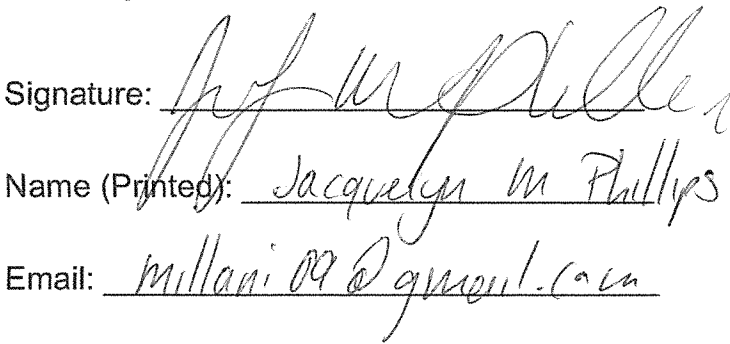 Signature:
Name (Printed): Jacquelyn M Phillips
Email: millani09@gmail.com